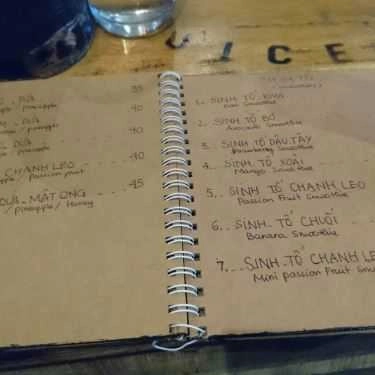 UICE
DỨA
pineapple
35
DỨA
/ pineapple
40
DỨA
/ pineapple
40
CHANH LEO
/ Passion fruit
40
DỨA. MẬT ONG
/ pineapple / Honey
45
SINH TỐ
1. SINH TỐ
Smoothie
2. SINH TỐ BƠ
Avocado Smoothie
3. SINH TỐ DÂU TÂY
Strawberry Smoothie
4. SINH TỐ XOÀI
Mango Smoothie
5. SINH TỐ CHANH LEO
Passion Fruit Smoothie
6. SINH TỐ CHUỐI
Banana Smoothie
7. SINH TỐ CHANH LEO
Mini passion Fruit Smoo